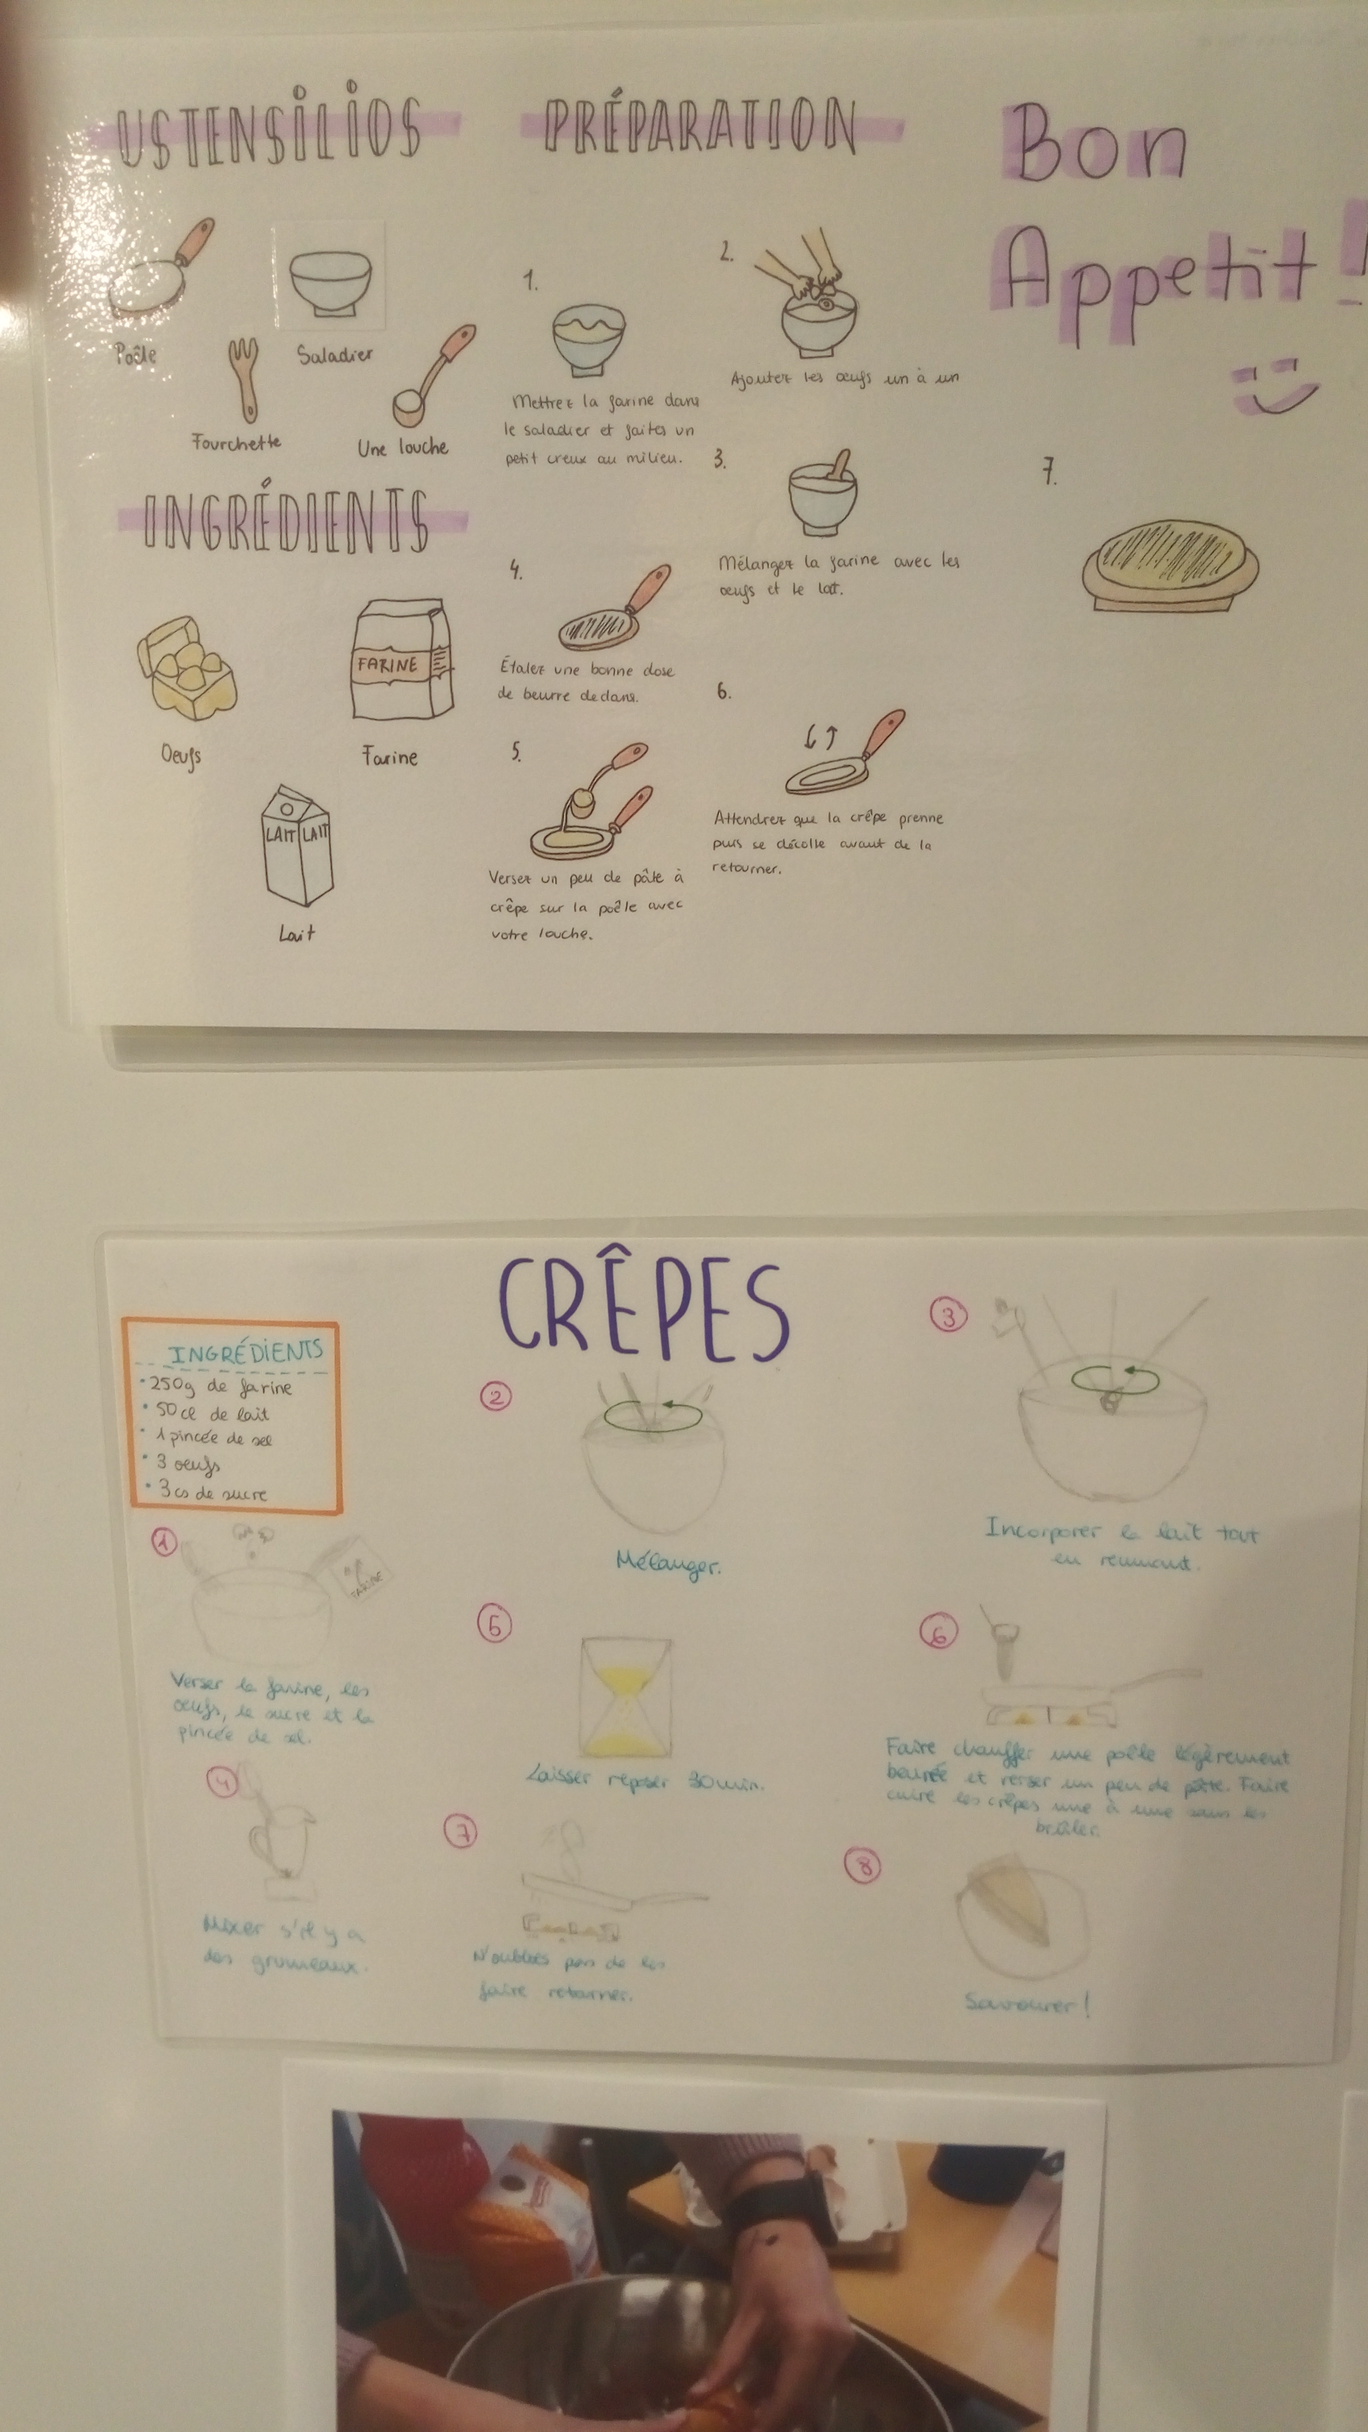 USTENSILIOS
Poêle
Saladier
Fourchette
Une louche
INGRÉDIENTS
FARINE
Oeufs
Farine
LAIT LAIT
Lait
PRÉPARATION
1.
Mettrez la farine dans
le saladier et faites un
petit creux au milieu.
2.
Ajoutez les œufs un à un
3.
Mélangez la farine avec les
oeufs et le lait.
4.
Étalez une bonne dose
de beurre dedans.
5.
Versez un peu de pâte à
crêpe sur la poêle avec
votre louche.
6.
Attendrez que la crêpe prenne
puis se décolle avant de la
retourner.
Bon
Appetit!
7.
CRÊPES
INGRÉDIENTS
• 250g de farine
• 50cl de lait
• 1 pincée de sel
• 3 oeufs
• 3cs de sucre
1
FARINE
Verser la farine, les
œufs, le sucre et la
pincée de sel.
2
Mélanger.
3
Incorporer le lait tout
en remuant.
4
Mixer s'il y a
des grumeaux.
5
Laisser reposer 30min.
6
Faire chauffer une poêle légèrement
beurrée et verser un peu de pâte. Faire
cuire les crêpes une à une sans les
brûler.
7
N'oubliez pas de les
faire retourner.
8
Savourer!